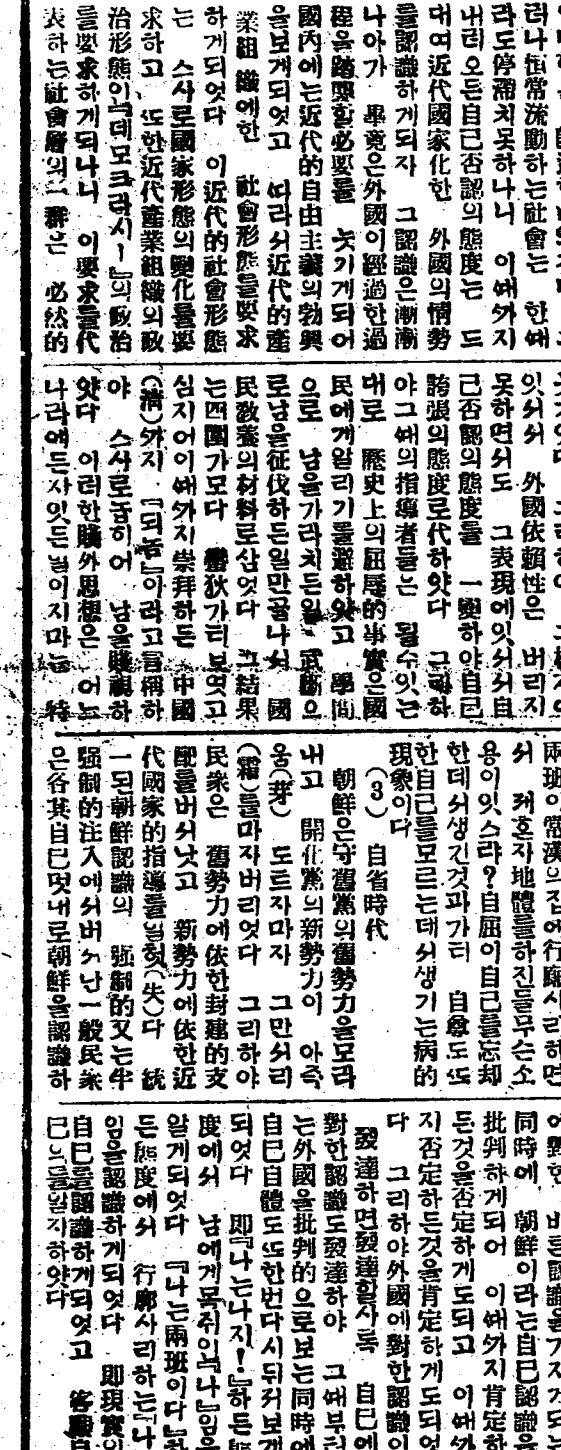 러나恒常流動하는社會는 한ᄯᅢ
라도停滯치못하나니 이ᄯᅢᄭᅡ지
내려오든自己否認의態度는 드
대여近代國家化한 外國의情勢
를認識하게되자 그認識은漸漸
나아가 畢竟은外國이經過한過
程을踏襲할必要를 늣기게되어
國內에는近代的自由主義의勃興
을보게되엿고 ᄯᅡ라서近代的産
業組織에한 社會形態를要求
하게되엿다 이近代的社會形態
는 스사로國家形態의變化를要
求하고 ᄯᅩ한近代産業組織의政
治形態인『데모크라시ー』의政治
를要求하게되나니 이要求를代
表하는社會層의一群은 必然的
잇서서 外國依賴性은 버리지
못하면서도 그表現에잇서서自
己否認의態度를 一變하야自己
誇張의態度로代하얏다 그리하
야그ᄯᅢ의指導者들는 될수잇는
대로 歷史上의屈辱的事實은國
民에게알리기를避하얏고 學問
으로 남을가라치든일 武斷으
로남을征伐하든일만골나서 國
民敎養의材料로삼엇다 그結果
는四圍가모다 蠻狄가티보엿고
심지어이ᄯᅢᄭᅡ지崇拜하든 中國
(淸)ᄭᅡ지 『되놈』이라고言稱하
야 스사로놉히어 남을賤視하
얏다 이러한賤外思想은 어느
나라에든지잇든일이지마는 特
兩班이常漢의집에行廊사리하면
서 제혼자地體를하진들무슨소
용이잇스랴?自屈이自己를忘却
한데서생긴것과가티 自尊도ᄯᅩ
한自己를모르는데서생기는病的
現象이다
(3) 自省時代
朝鮮은守舊黨의舊勢力을모라
내고 開化黨의新勢力이 아즉
움(芽) 도트자마자 그만서리
(霜)를마자버리엇다 그리하야
民衆은 舊勢力에依한封建的支
配를버서낫고 新勢力에依한近
代國家的指導를닐헛(失)다 統
一된朝鮮認識의 强制的又는半
强制的注入에서버서난一般民衆
은各其自己멋내로朝鮮을認識하
同時에 朝鮮이라는自己認識을
批判하게되어 이ᄯᅢᄭᅡ지肯定하
든것을否定하게도되고 이ᄯᅢᄭᅡ
지否定하든것을肯定하게도되엿
다 그리하야外國에對한認識이
發達하면發達할사록 自己에
對한認識도發達하야 그ᄯᅢ부터
는外國을批判的으로보는同時에
自己自體도ᄯᅩ한번다시뒤저보게
되엇다 即『나는나지!』하든態
度에서 남에게목쥐인『나』임을
알게되엿다 『나는兩班이다』하
든態度에서 行廊사리하는『나』
임을認識하게되엿다 即現實의
自己를認識하게되엿고 客觀自
己의를알지하얏다